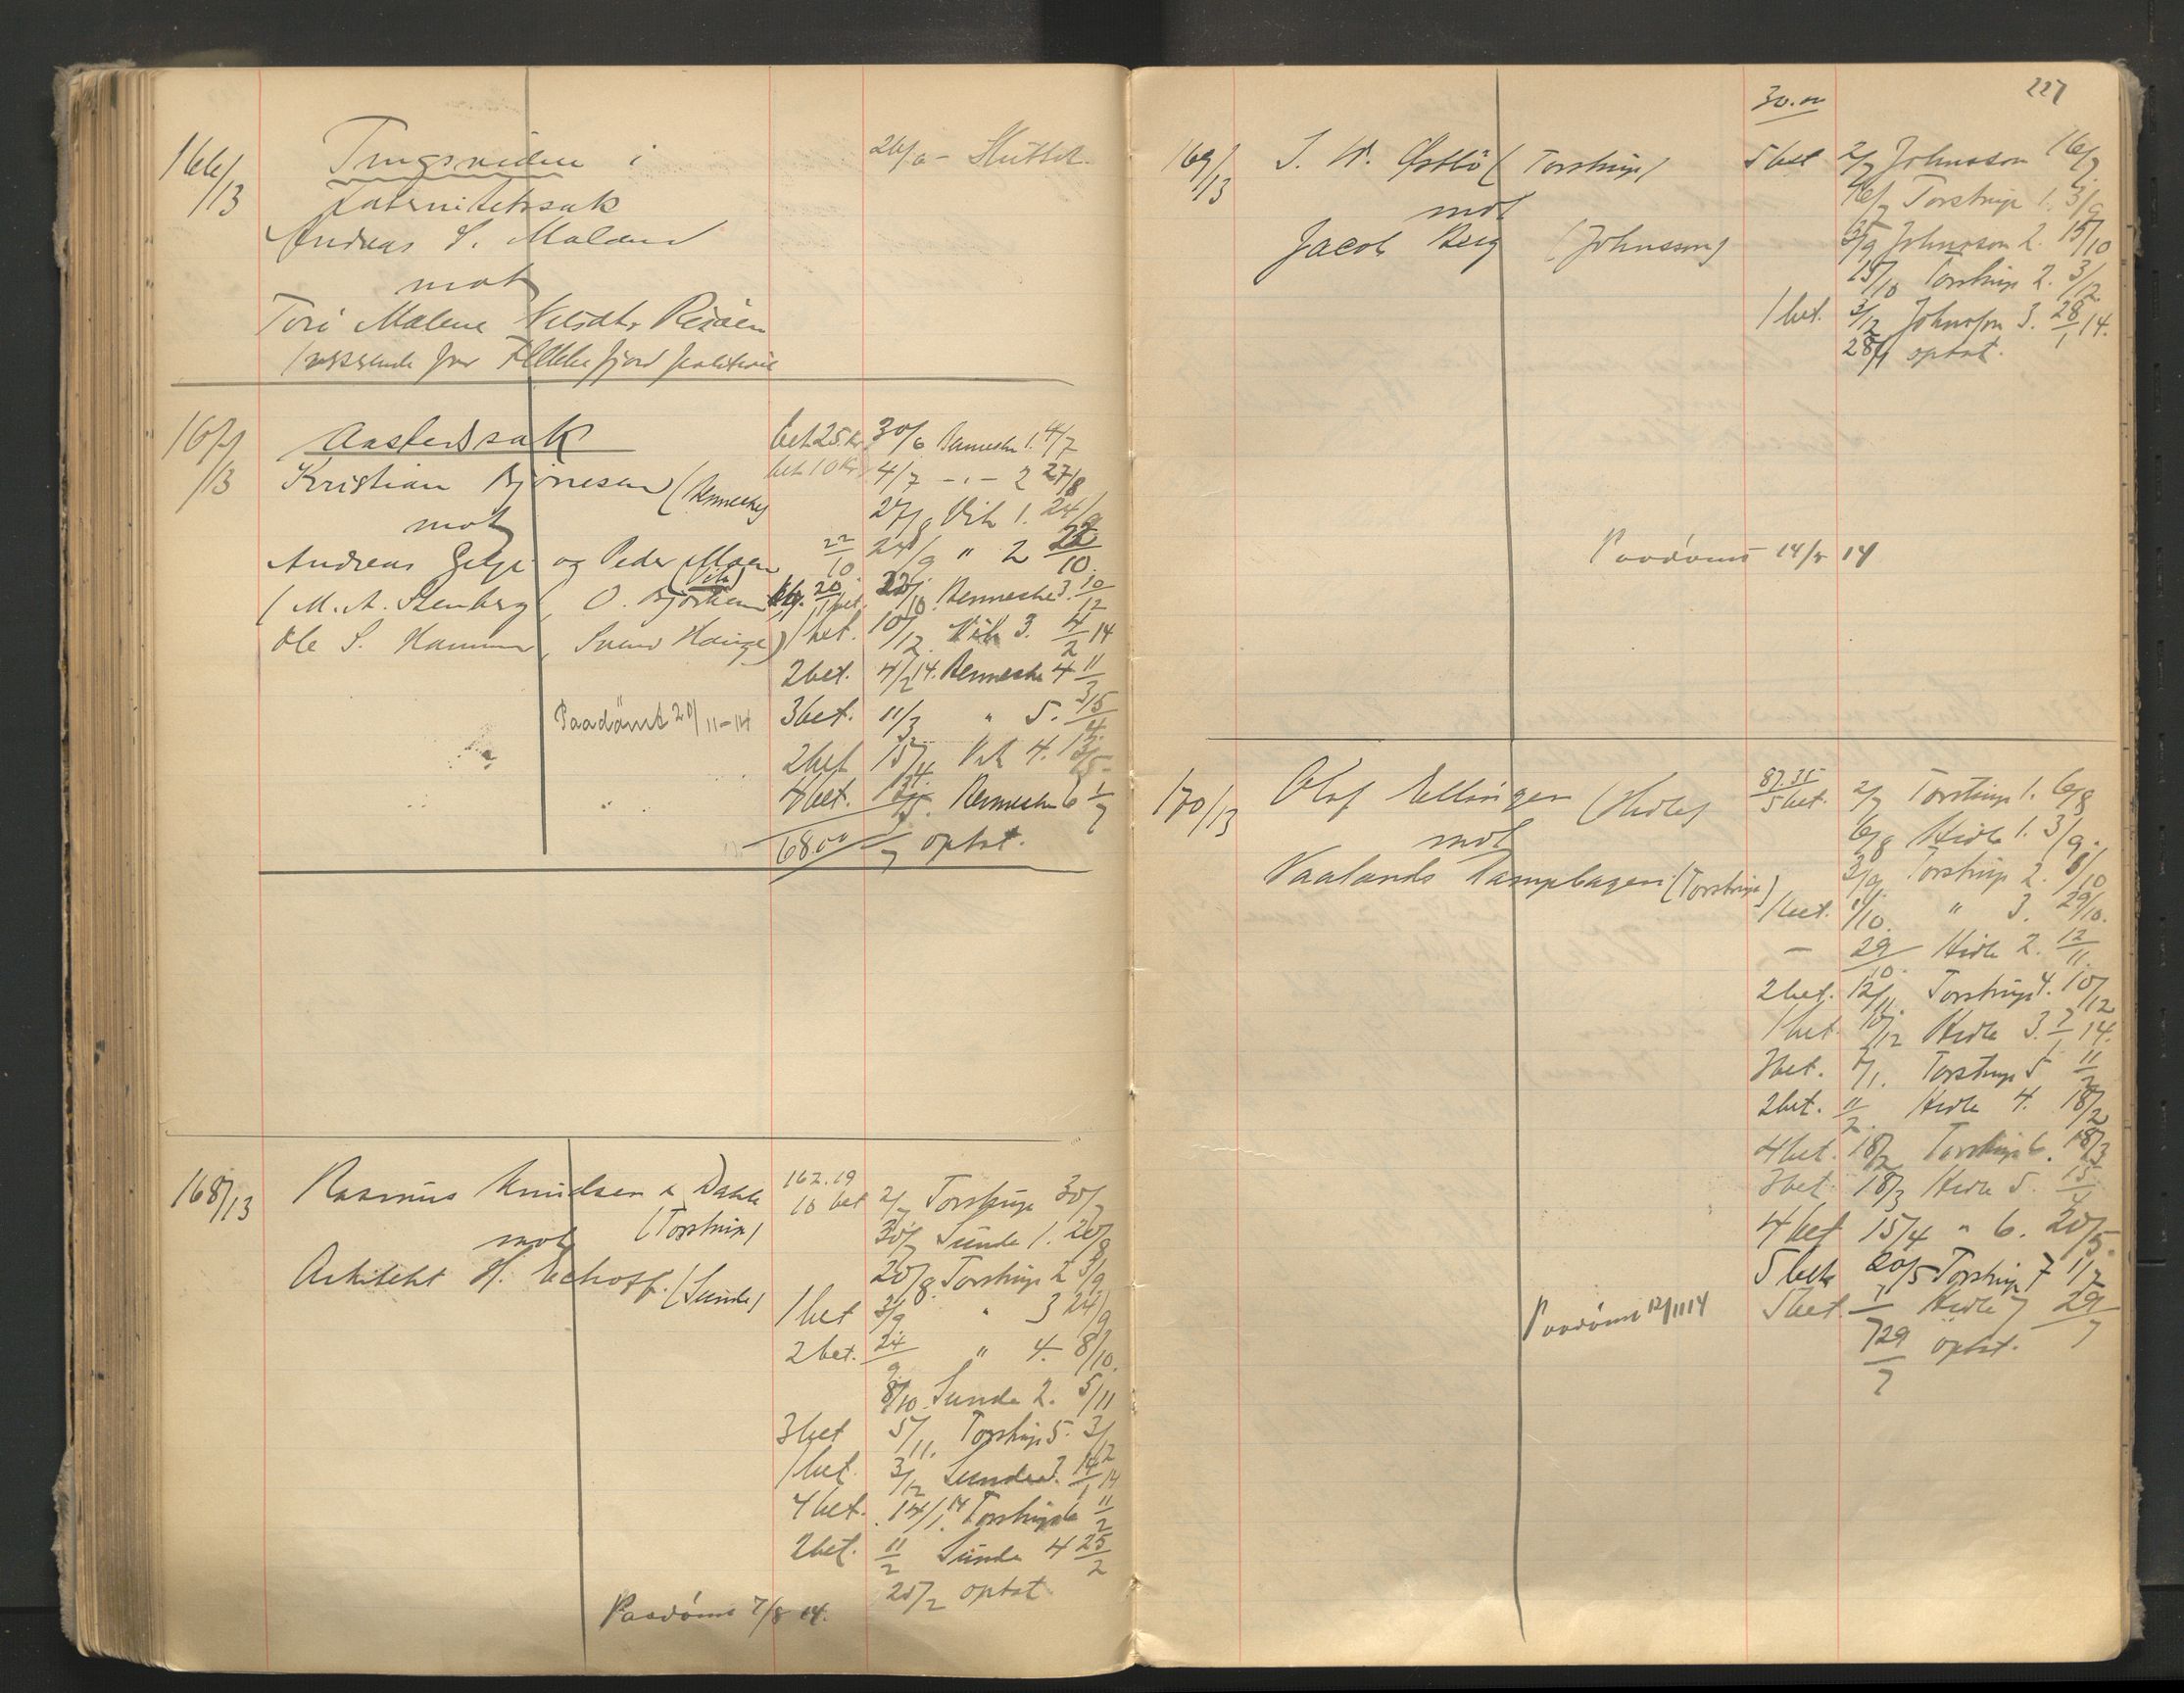 166/13 Tingsvidne i 26/6 - Sluttet.
Paternitetssak
Andreas S. Maland
mot
Tori Malene Nilsdtr
for Flekkefjord politiret
167/13 Aastedssak bet 25 kr 30/6 Benneche 1. 4/7
Kristian Bjørnesen (Benneche) bet 10 kr 4/7 - " - 2 27/8
mot 27/8 Vik 1. 24/9
Andreas Gilje og Peder Moen 22/10 24/9 " 2 22/10
(Vik)
(M. A. Stenberg, O. 20/11 bet. 22/10 Benneche 3. 10/12
Ole S. Hammer, Svend Hauge) 1 bet. 10/12 Vik 3. 4/2 14
2 bet. 4/2 14. Benneche 4 11/3
Paadömt 20/11-14 3 bet. 11/3 " 5. 15/4
2 bet 15/4 Vik 4. 13/5
4 bet. 13/5. Benneche 6 1/7
68.00 1/7 optat.
168/13 Rasmus Knudsen Dahle 162.19
(Torstrup) 10 bet 2/7 Torstrup 30/7
mot 30/7 Sunde 1. 20/8
Arkitekt H. Eckhoff. (Sunde) 20/8. Torstrup 2 3/9
1 bet 3/9 " 3 24/9
2 bet. 24/9 " 4. 8/10.
8/10. Sunde 2. 5/11
3 bet 5/11. Torstrup 5. 3/12
1 bet. 3/12 Sunde 3. 14/1 14
4 bet. 14/1 14 Torstrup 6 11/2
2 bet. 11/2 Sunde 4 25/2
25/2 optat
Paadömt 7/8 14.
227
30.00
169/13 (Torstrup) 5 bet 2/7 Johnsson 16/7.
mot 16/7 Torstrup 1. 3/9
Jacob Berg (Johnsson) 3/9 Johnsson 2. 15/10
15/10 Torstrup 2. 3/12.
1 bet. 3/12 Johnsson 3. 28/1 14.
28/1 optat.
Paadömt 14/5 14
170/13 Olaf Ellingsen (Hidle) 87.35
5 bet. 2/7 Torstrup 1. 6/8
mot 6/8 Hidle 1. 3/9.
Vaalands Dampbageri (Torstrup) 3/9. Torstrup 2. 8/10
1 bet. 8/10. " 3. 29/10.
- 29/10. Hidle 2. 12/11.
2 bet. 12/11. Torstrup 4. 10/12
1 bet 10/12 Hidle 3. 7/1 14.
3 bet. 7/1. Torstrup 5 11/2
2 bet. 11/2. Hidle 4. 18/2
4 bet. 18/2 Torstrup 6. 18/3
3 bet. 18/3 Hidle 5. 15/4
4 bet 15/4 " 6. 20/5.
5 bet 20/5 Torstrup 7 1/7
Paadömt 12/11 14 5 bet. 1/7 Hidle 7 29/7
29/7 optat.